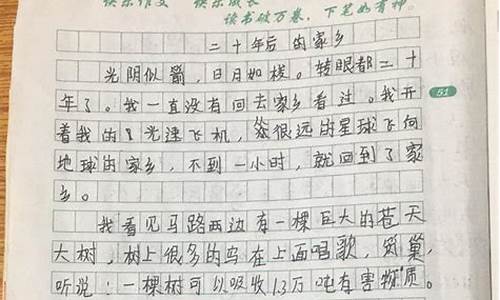 快乐作文 快乐成长
读书破万卷，下笔如有神。
二十年后的家乡
光阴似箭，日月如梭。转眼都二十
年了。我一直没有回去家乡看过。我开
51
着我的8光速飞机，很远的星球飞向
地球的家乡，不到一小时，就回到了家
乡。
我看见马路两边有一棵巨大的苍天
大树，树上很多的鸟在上面唱歌，筑巢，
听说：一棵树可以吸收13万吨有害物质。